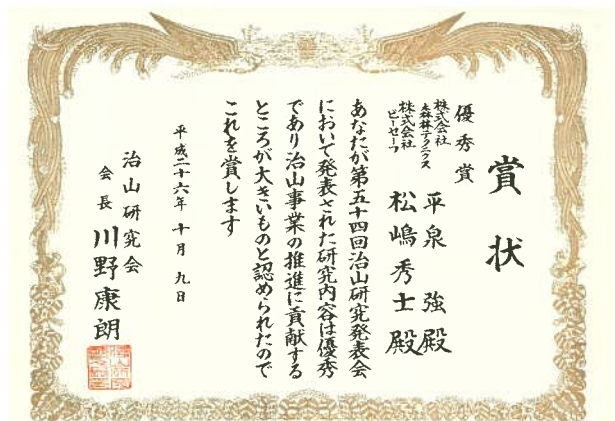 賞状
優秀賞
株式会社
森林テクニクス
平泉 強殿
株式会社
ビーセーフ
松嶋秀士殿
あなたが第五十四回治山研究発表会
において発表された研究内容は優秀
であり治山事業の推進に貢献する
ところが大きいものと認められたので
これを賞します
平成二十六年 十月 九日
治山研究会
会長 川野康朗